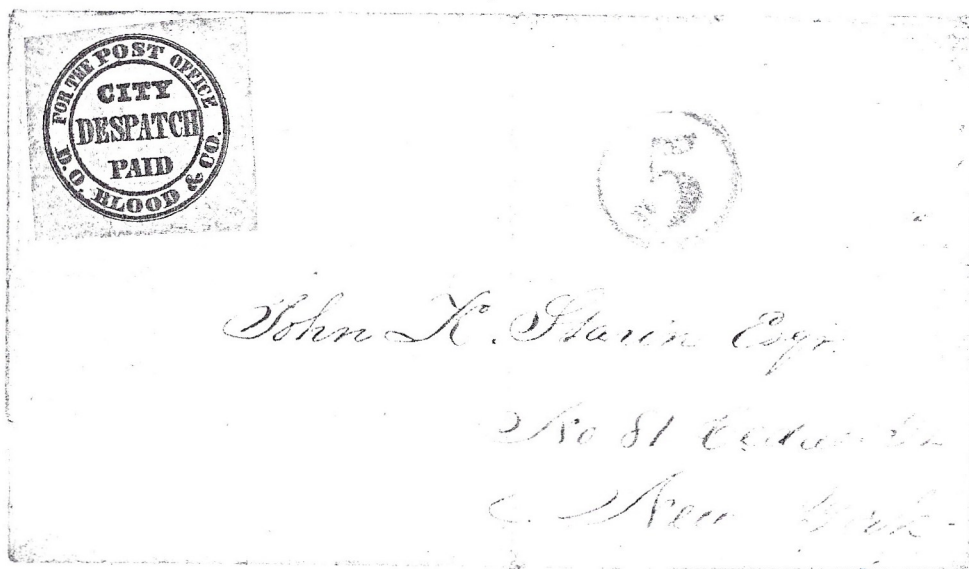 FOR THE POST OFFICE
CITY
DESPATCH
PAID
D.O. BLOOD & CO.
5
John H. Starin Esqr.
No 81
New York